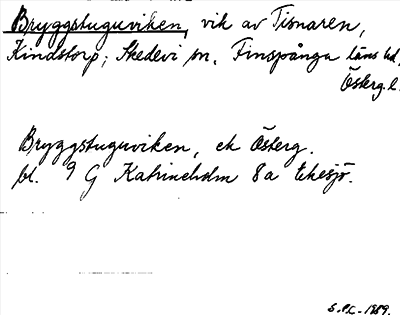 Bryggstuguviken, vik av Tisnaren,
Kindstorp; Skedevi sn, Finspånga läns hd,
Österg.l.
Bryggstuguviken, ek Österg.
bl. 9 G Katrineholm 8a Ekesjö.
1989.